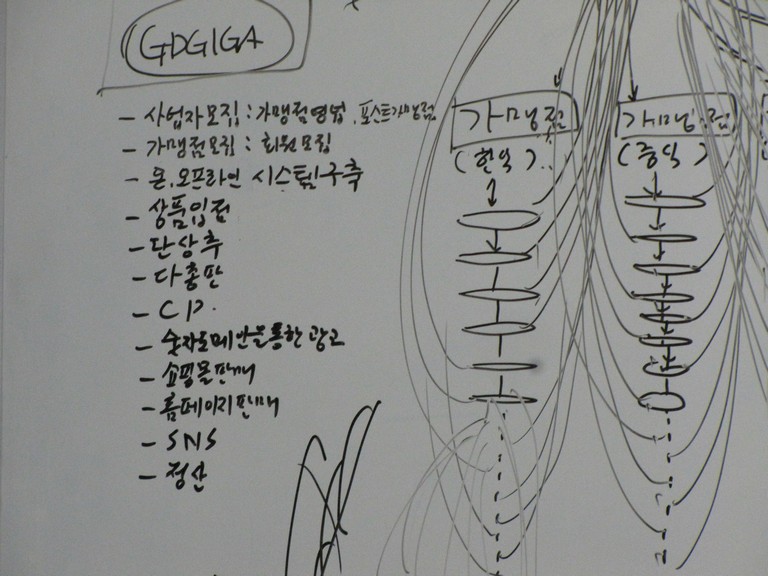 GDGIGA
- 사업자모집 : 가맹점영업, 포스트가맹점
- 가맹점모집 : 회원모집
- 온.오프라인 시스템구축
- 상품입점
- 단상추
- 다총판
- CP.
- 숫자도메인을통한 광고
- 쇼핑몰판매
- 홈페이지판매
- SNS
- 정산
가맹점
(한식)..
가맹점
(중식)